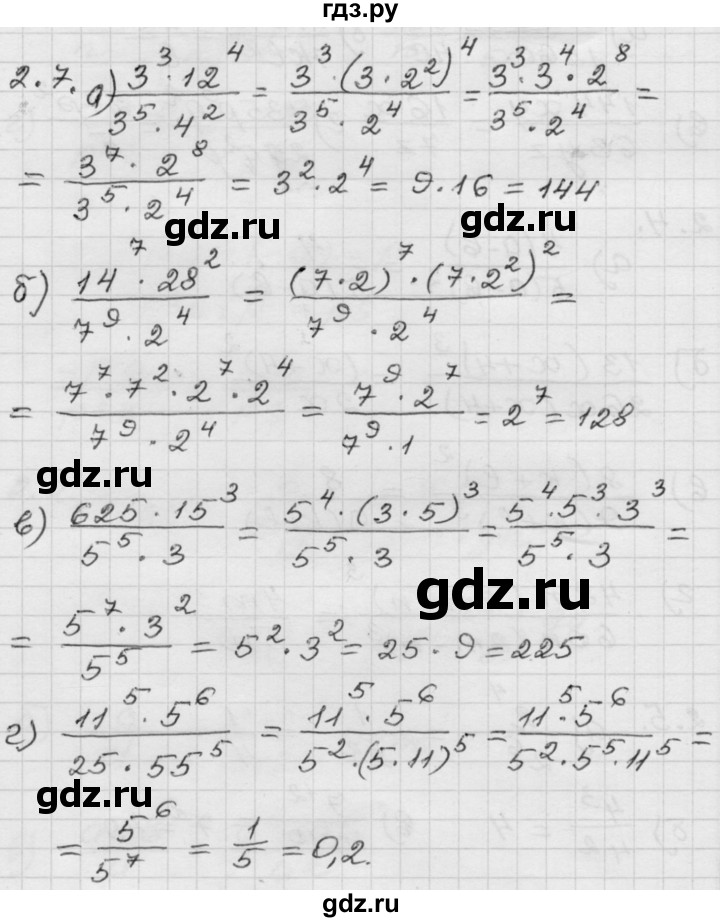 гдз.ру
2.7. а) 3³·12⁴/3⁵·4² = 3³·(3·2²)⁴/3⁵·2⁴ = 3³·3⁴·2⁸/3⁵·2⁴ =
= 3⁷·2⁸/3⁵·2⁴ = 3²·2⁴ = 9·16 = 144
gdz.ru gdz.ru
б) 14⁷·28²/7⁹·2⁴ = (7·2)⁷·(7·2²)²/7⁹·2⁴ =
= 7⁷·7²·2⁷·2⁴/7⁹·2⁴ = 7⁹·2⁷/7⁹·1 = 2⁷ = 128
gdz.ru
в) 625·15³/5⁵·3 = 5⁴·(3·5)³/5⁵·3 = 5⁴·5³·3³/5⁵·3 =
gdz.ru
= 5⁷·3²/5⁵ = 5²·3² = 25·9 = 225
г) 11⁵·5⁶/25·55⁵ = 11⁵·5⁶/5²·(5·11)⁵ = 11⁵·5⁶/5²·5⁵·11⁵ =
gdz.ru
= 5⁶/5⁷ = 1/5 = 0,2.
gdz.ru